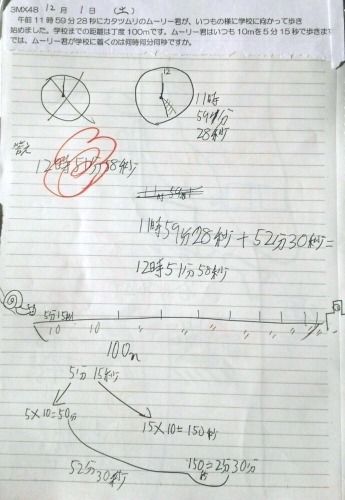 3MX48 12月 1日 (土)
午前11時59分28秒にカタツムリのムーリー君が、いつもの様に学校に向かって歩き
始めました。学校までの距離は丁度100mです。ムーリー君はいつも10mを5分15秒で歩きま
では、ムーリー君が学校に着くのは何時何分何秒ですか。
12
11時
59分
28秒
答え
12時51分58秒
11時59分
11時59分28秒+52分30秒=
12時51分58秒
5分15秒
10 10
100m
5分15秒
5×10=50分
15×10=150秒
150秒=2分30分
52分
30秒